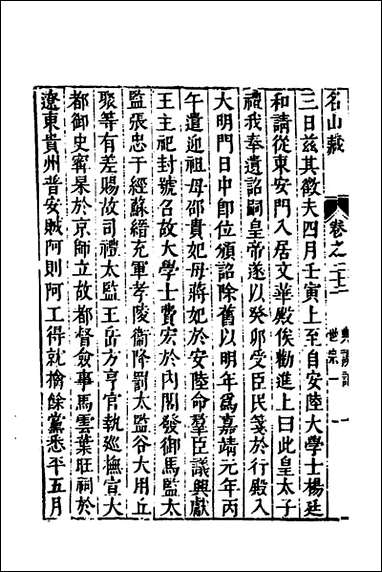 名山藏 卷之二十二 典謨記 世宗一 一
三日兹其徵夫四月壬寅上至自安陸大學士楊廷
和請從東安門入居文華殿俟勸進上曰此皇太子
禮我奉遺詔嗣皇帝遂以癸卯受臣民箋於行殿入
大明門日中卽位頒詔除舊以明年爲嘉靖元年丙
午遣迎祖母邵貴妃母蔣妃於安陸命羣臣議興獻
王主祀封號名故大學士費宏於內閣發御馬監太
監張忠于經蘇縉充軍孝陵衞降罰太監谷大用丘
聚等有差賜故司禮太監王岳方亨官執廵撫宣大
都御史甯杲於京師立故都督僉事馬雲葉旺祠於
遼東貴州普安賊阿則阿工得就擒餘黨悉平五月